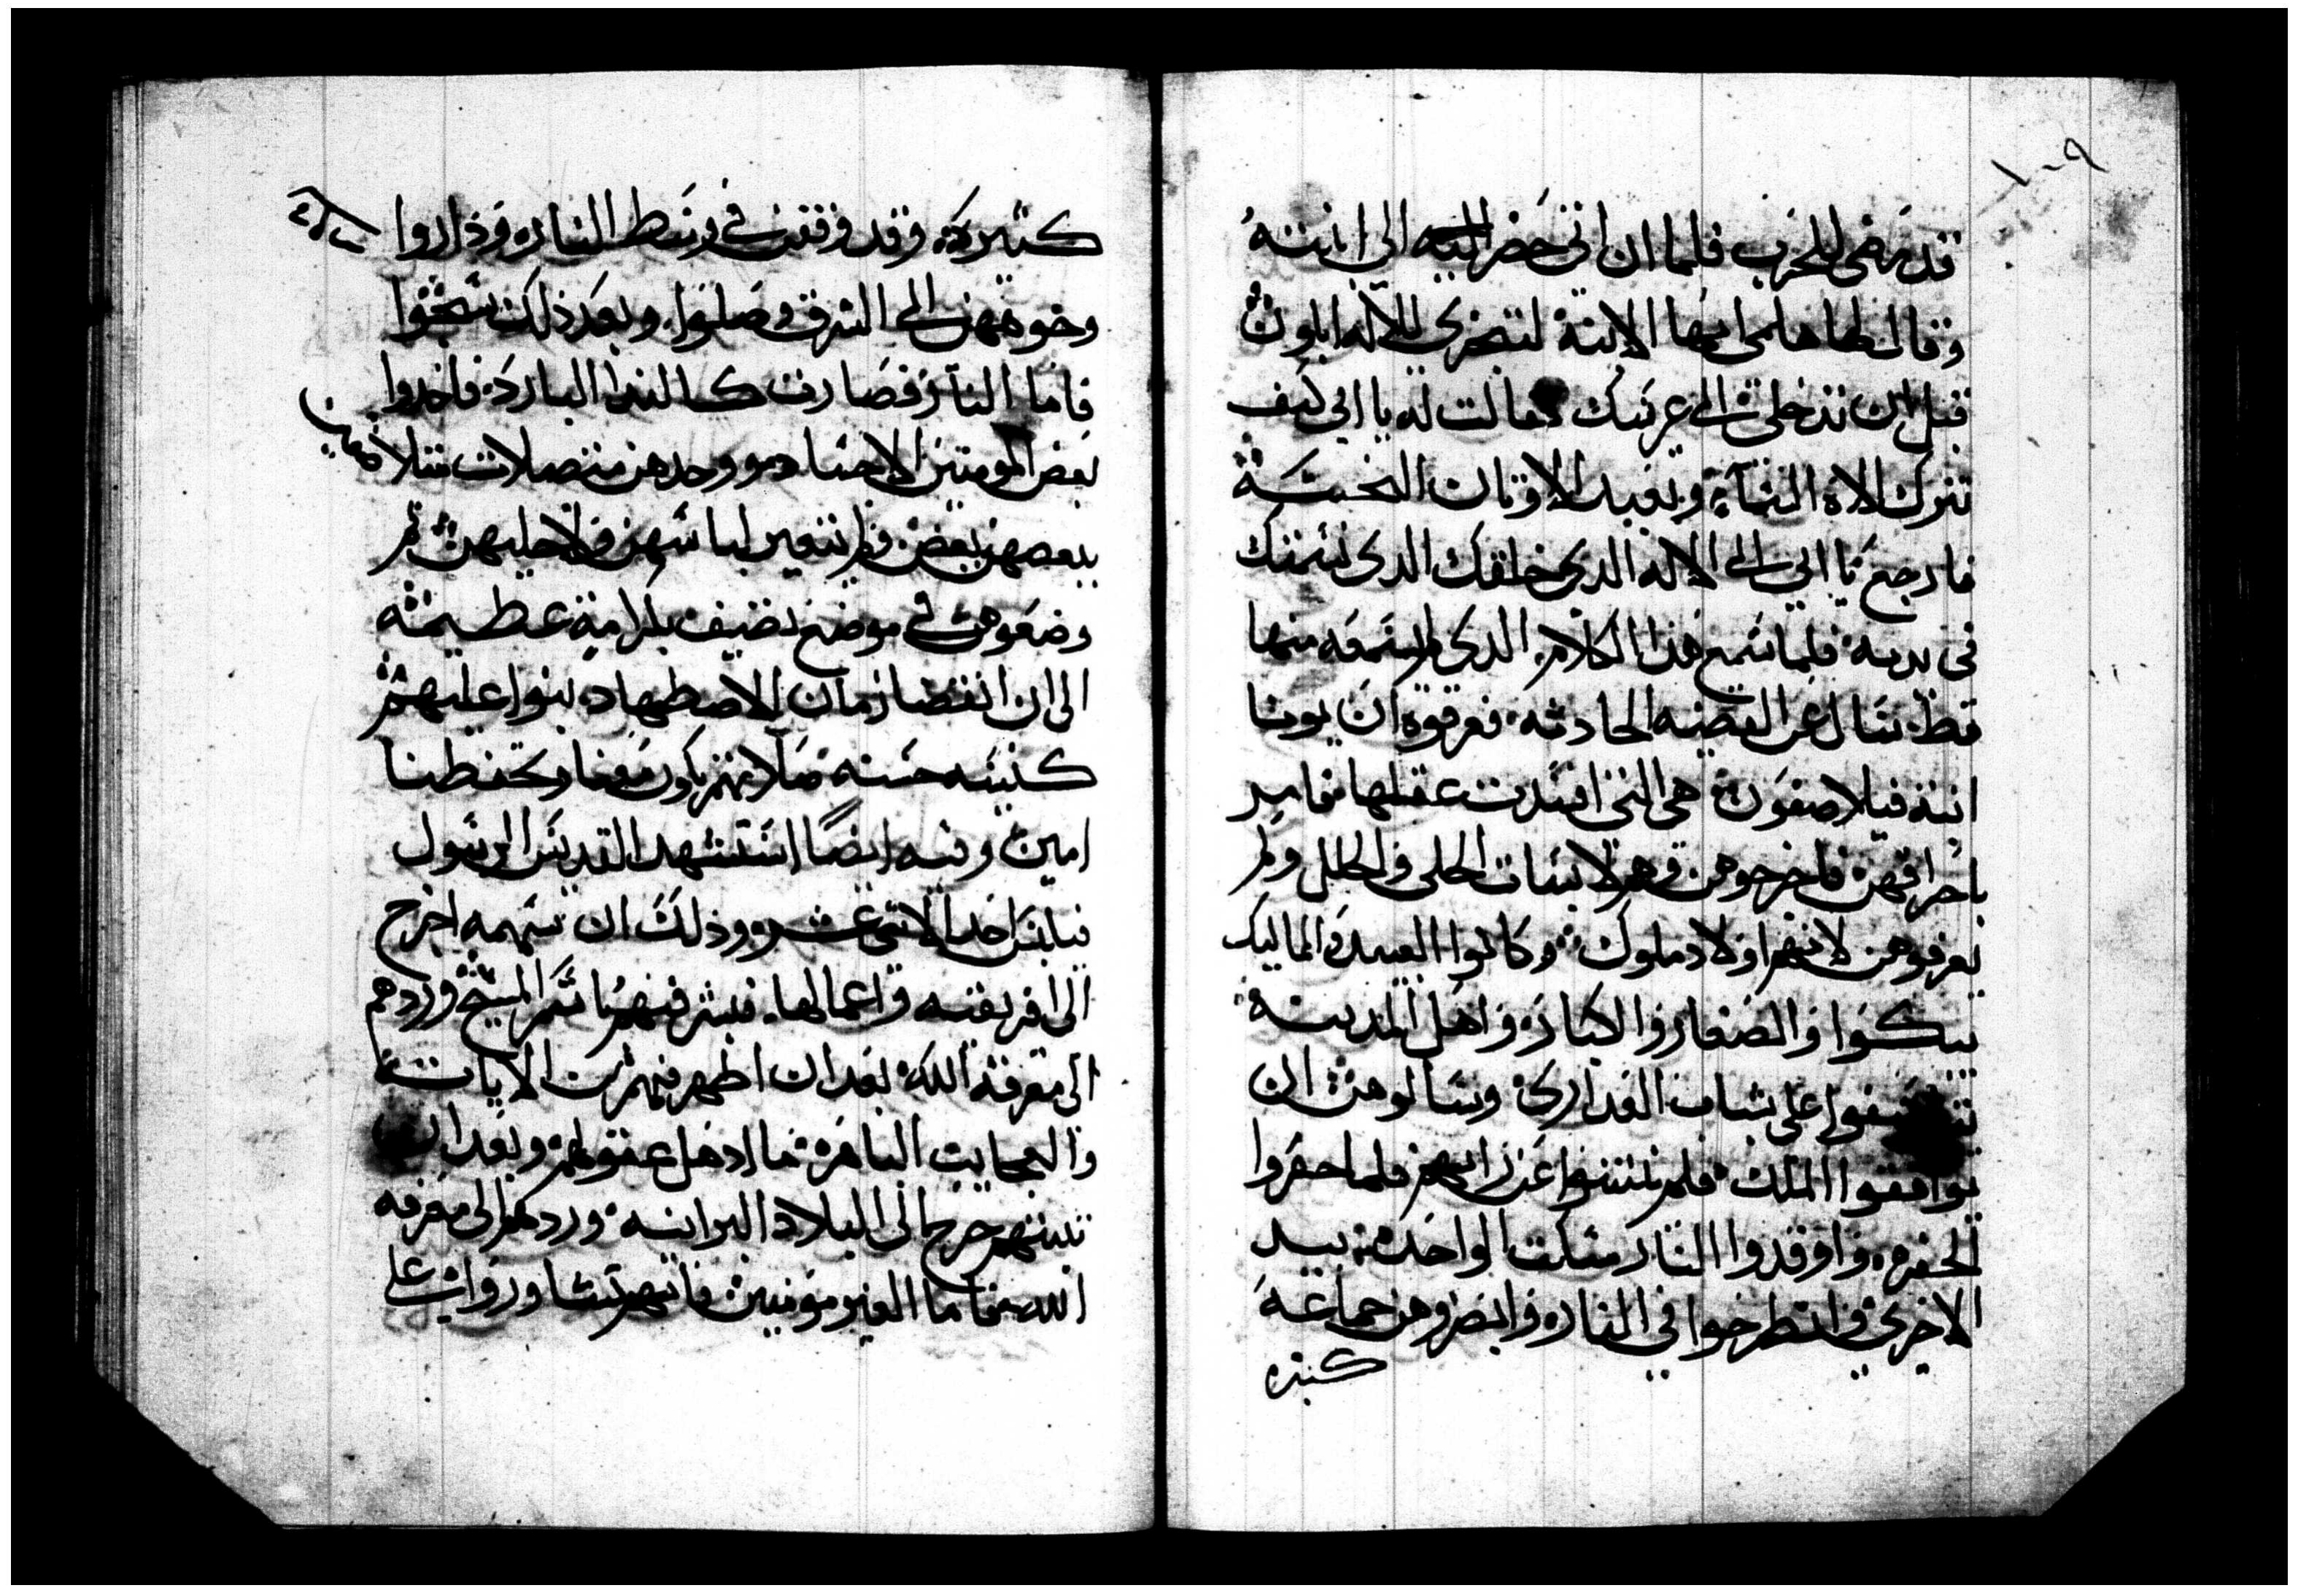 ١٠٩
قد مضى للحرب فلما ان اتى حضر اليه الي ابنته
وقال لها هلمى ايتها الابنة لتبخري للاله ابلون
قبل ان تدخلى الى عرسك فقالت له يا ابي كيف
تترك الاه السماء وتعبد الاوتان النجسة
فارجع يا ابي الى الاله الدي خلقك الدي نسمتك
فى يديه فلما سمع هذا الكلام الدي لم يسمعه منها
قط سال عن القضيه الحادثه فعرفوه ان يوستا
ابنة فيلاصفون هي التى افسدت عقلها فامر
باحراقهن فاخرجوهن وهم لابسات الحلى والحلل ولم
يعرفوهن لانهم اولاد ملوك وكانوا العبيد والماليك
يبكوا والصغار والكبار واهل المدينة
يتاسفوا على شباب العدارى وسالوهن ان
يوافقوا الملك فلم ينتنوا عن رايهم فلما احفروا
الحفره واوقدوا النار مسكت الواحدة بيد
الاخرى وانطرحوا في النار وابصروهن جماعة
كتيره
كتيرة وقد وقفن في وسط النار وداروا
وجوههن الى الشرق وصلوا وبعد ذلك تنيحوا
فاما النار فصارت كالندا البارد فاخدوا
بعض المومنين الاجساد ووجدهن متصلات متلاصقين
ببعضهن بعض ولم تتغير لباسهن ولا حليهن ثم
وضعوهن في موضع نضيف بكرامة عظيمة
الى ان انقضا زمان الاضطهاد بنوا عليهم
كنيسه حسنه صلاتهم تكون معنا وتحفظنا
امين وفيه ايضا استشهد القديس الرسول
فيلبس احد الاتنى عشر وذلك ان سهمه اخرج
الى افريقيه واعمالها فبشر فيهم باسم المسيح وردهم
الى معرفة الله بعد ان اظهر فيهم من الايات
والعجايب الباهرة ما ادهل عقولهم وبعد ان
تبتهم خرج الى البلاد البرانيه وردهم الى معرفه
الله فاما الغير مومنين فانهم تشاوروا على